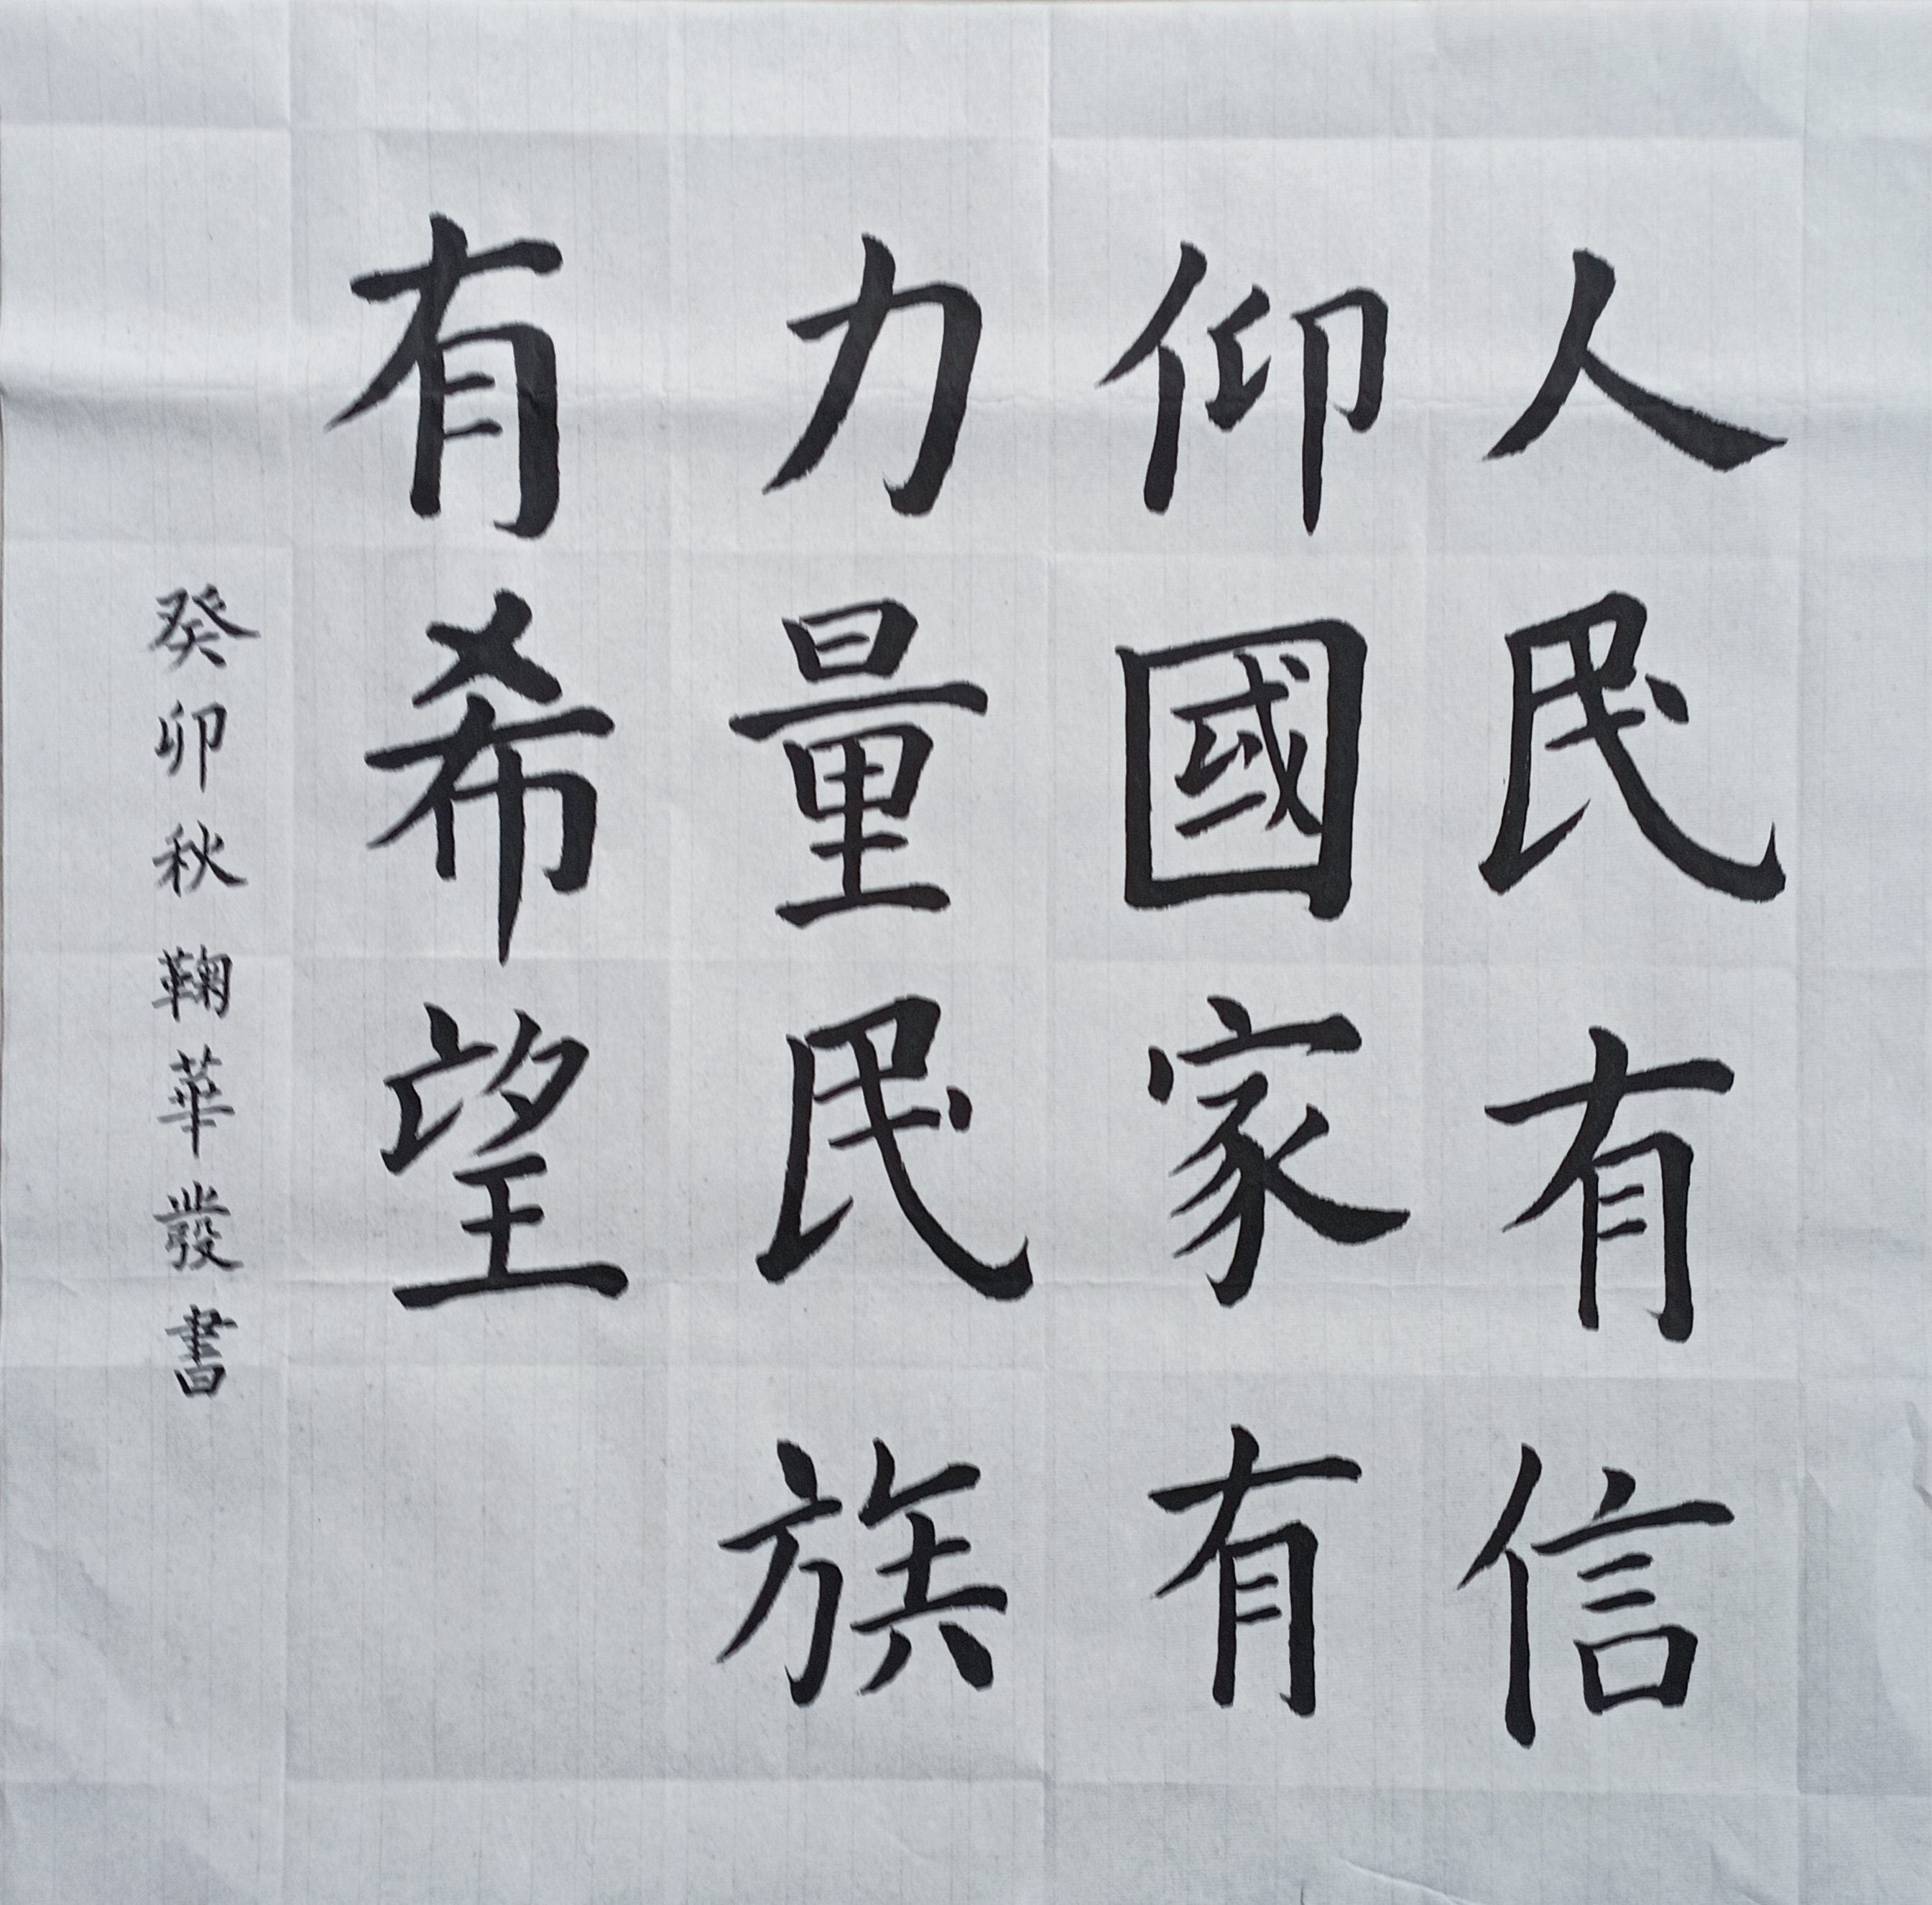 人民有信
仰國家有
力量民族
有希望
癸卯秋鞠華發書